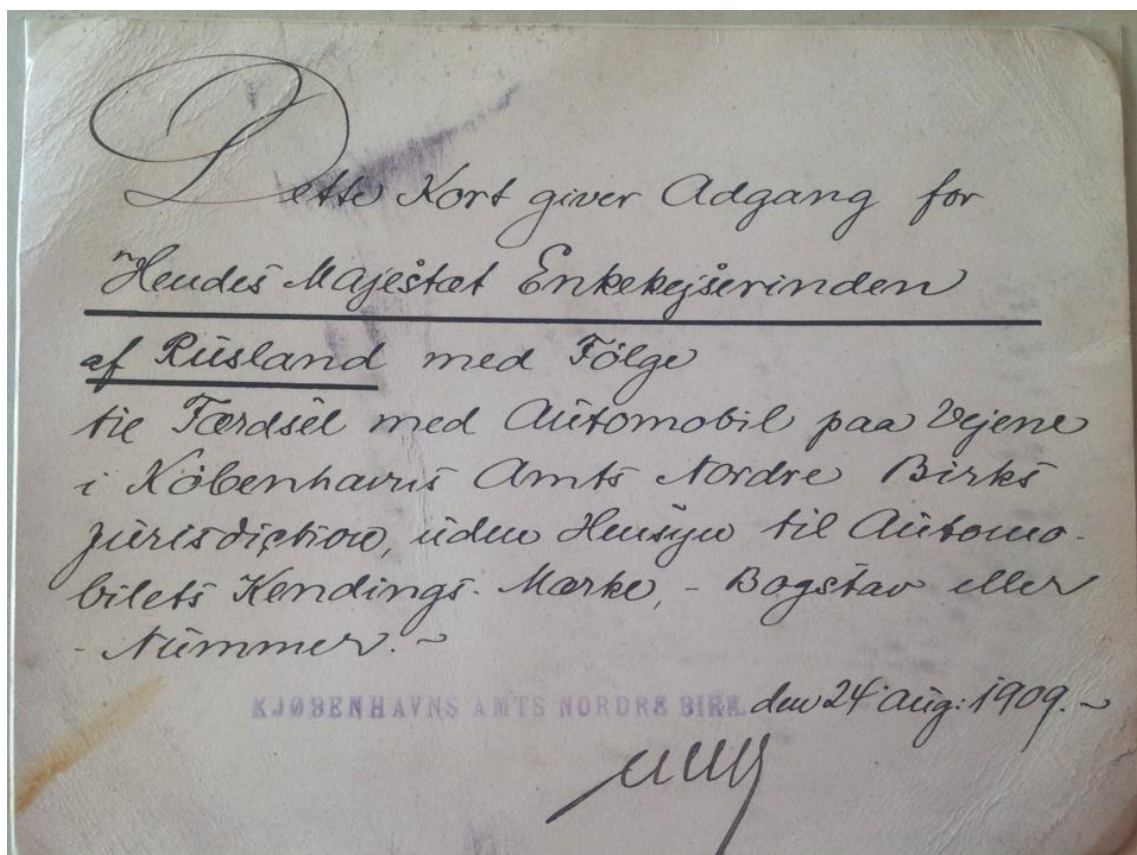 Dette Kort giver Adgang for
Hendes Majestæt Enkekejserinden
af Rusland med Følge
til Færdsel med Automobil paa Vejene
i Københavns Amts Nordre Birks
Jurisdiction, uden Hensyn til Automo-
bilets Kendings-Mærke, - Bogstav eller
- Nummer. ~
KJØBENHAVNS AMTS NORDRE BIRK den 24' Aug: 1909. ~